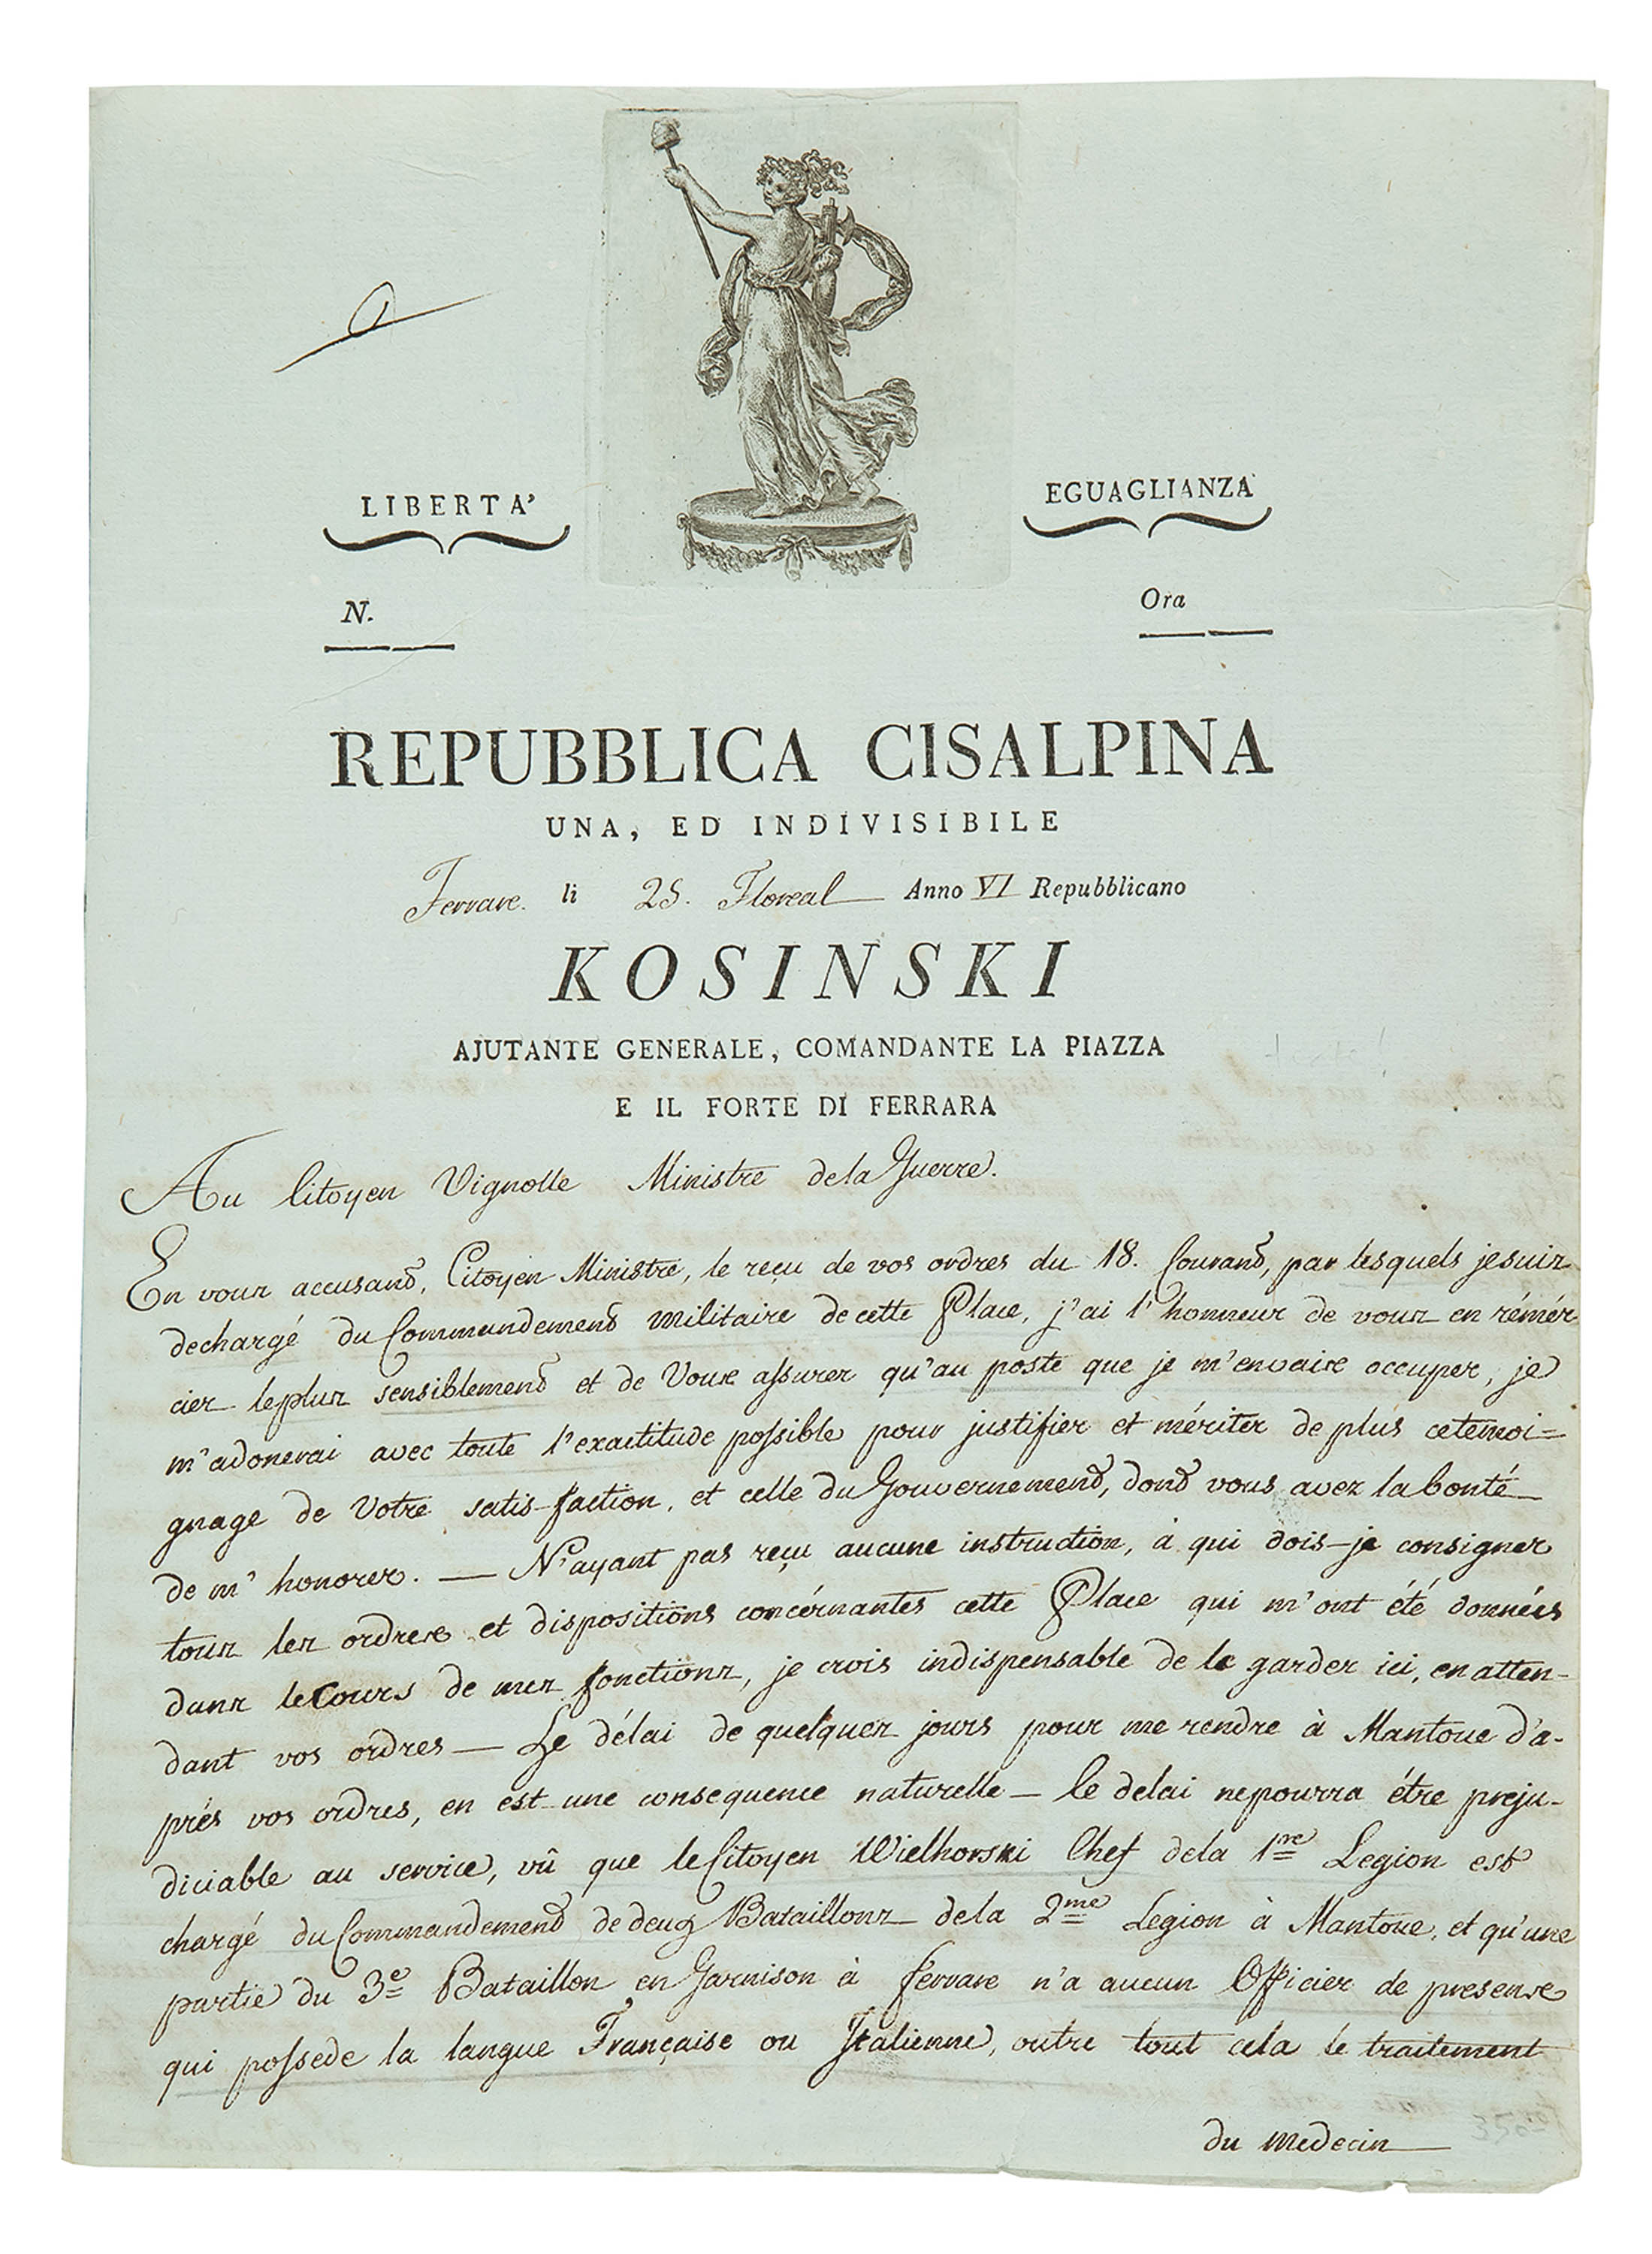 LIBERTA'
EGUAGLIANZA
N.
Ora
REPUBBLICA CISALPINA
UNA, ED INDIVISIBILE
Ferrare. li 25. Floreal Anno VI Repubblicano
KOSINSKI
AJUTANTE GENERALE, COMANDANTE LA PIAZZA
E IL FORTE DI FERRARA
Au Citoyen Vignolle Ministre de la Guerre.
En vous accusant, Citoyen Ministre, le reçu de vos ordres du 18. Courant, par lesquels je suis
dechargé du Commandement militaire de cette Place, j'ai l'honneur de vous en rémér-
cier le plus sensiblement et de Vous assurer qu'au poste que je m'en vais occuper, je
m'adonerai avec toute l'exactitude possible pour justifier et mériter de plus ce temoi=
gnage de Votre satis-faction, et celle du Gouvernement, dont vous avez la bonté
de m'honorer. — N'ayant pas reçu aucune instruction, à qui dois-je consigner
tous les ordres et dispositions concérnantes cette Place qui m'ont été données
dans le Cours de mes fonctions, je crois indispensable de le garder ici, en atten-
dant vos ordres — Le délai de quelques jours pour me rendre à Mantoue d'a-
prés vos ordres, en est une consequence naturelle — Ce delai ne pourra étre preju-
diciable au service, vû que le Citoyen Wielhorski Chef de la 1re Legion est
chargé du Commandement de deux Bataillons de la 2me Legion à Mantoue, et qu'une
partie du 3e Bataillon en Garnison à Ferrare n'a aucun Officier de presence
qui possede la langue Française ou Italienne, outre tout cela le traitement
du medecin